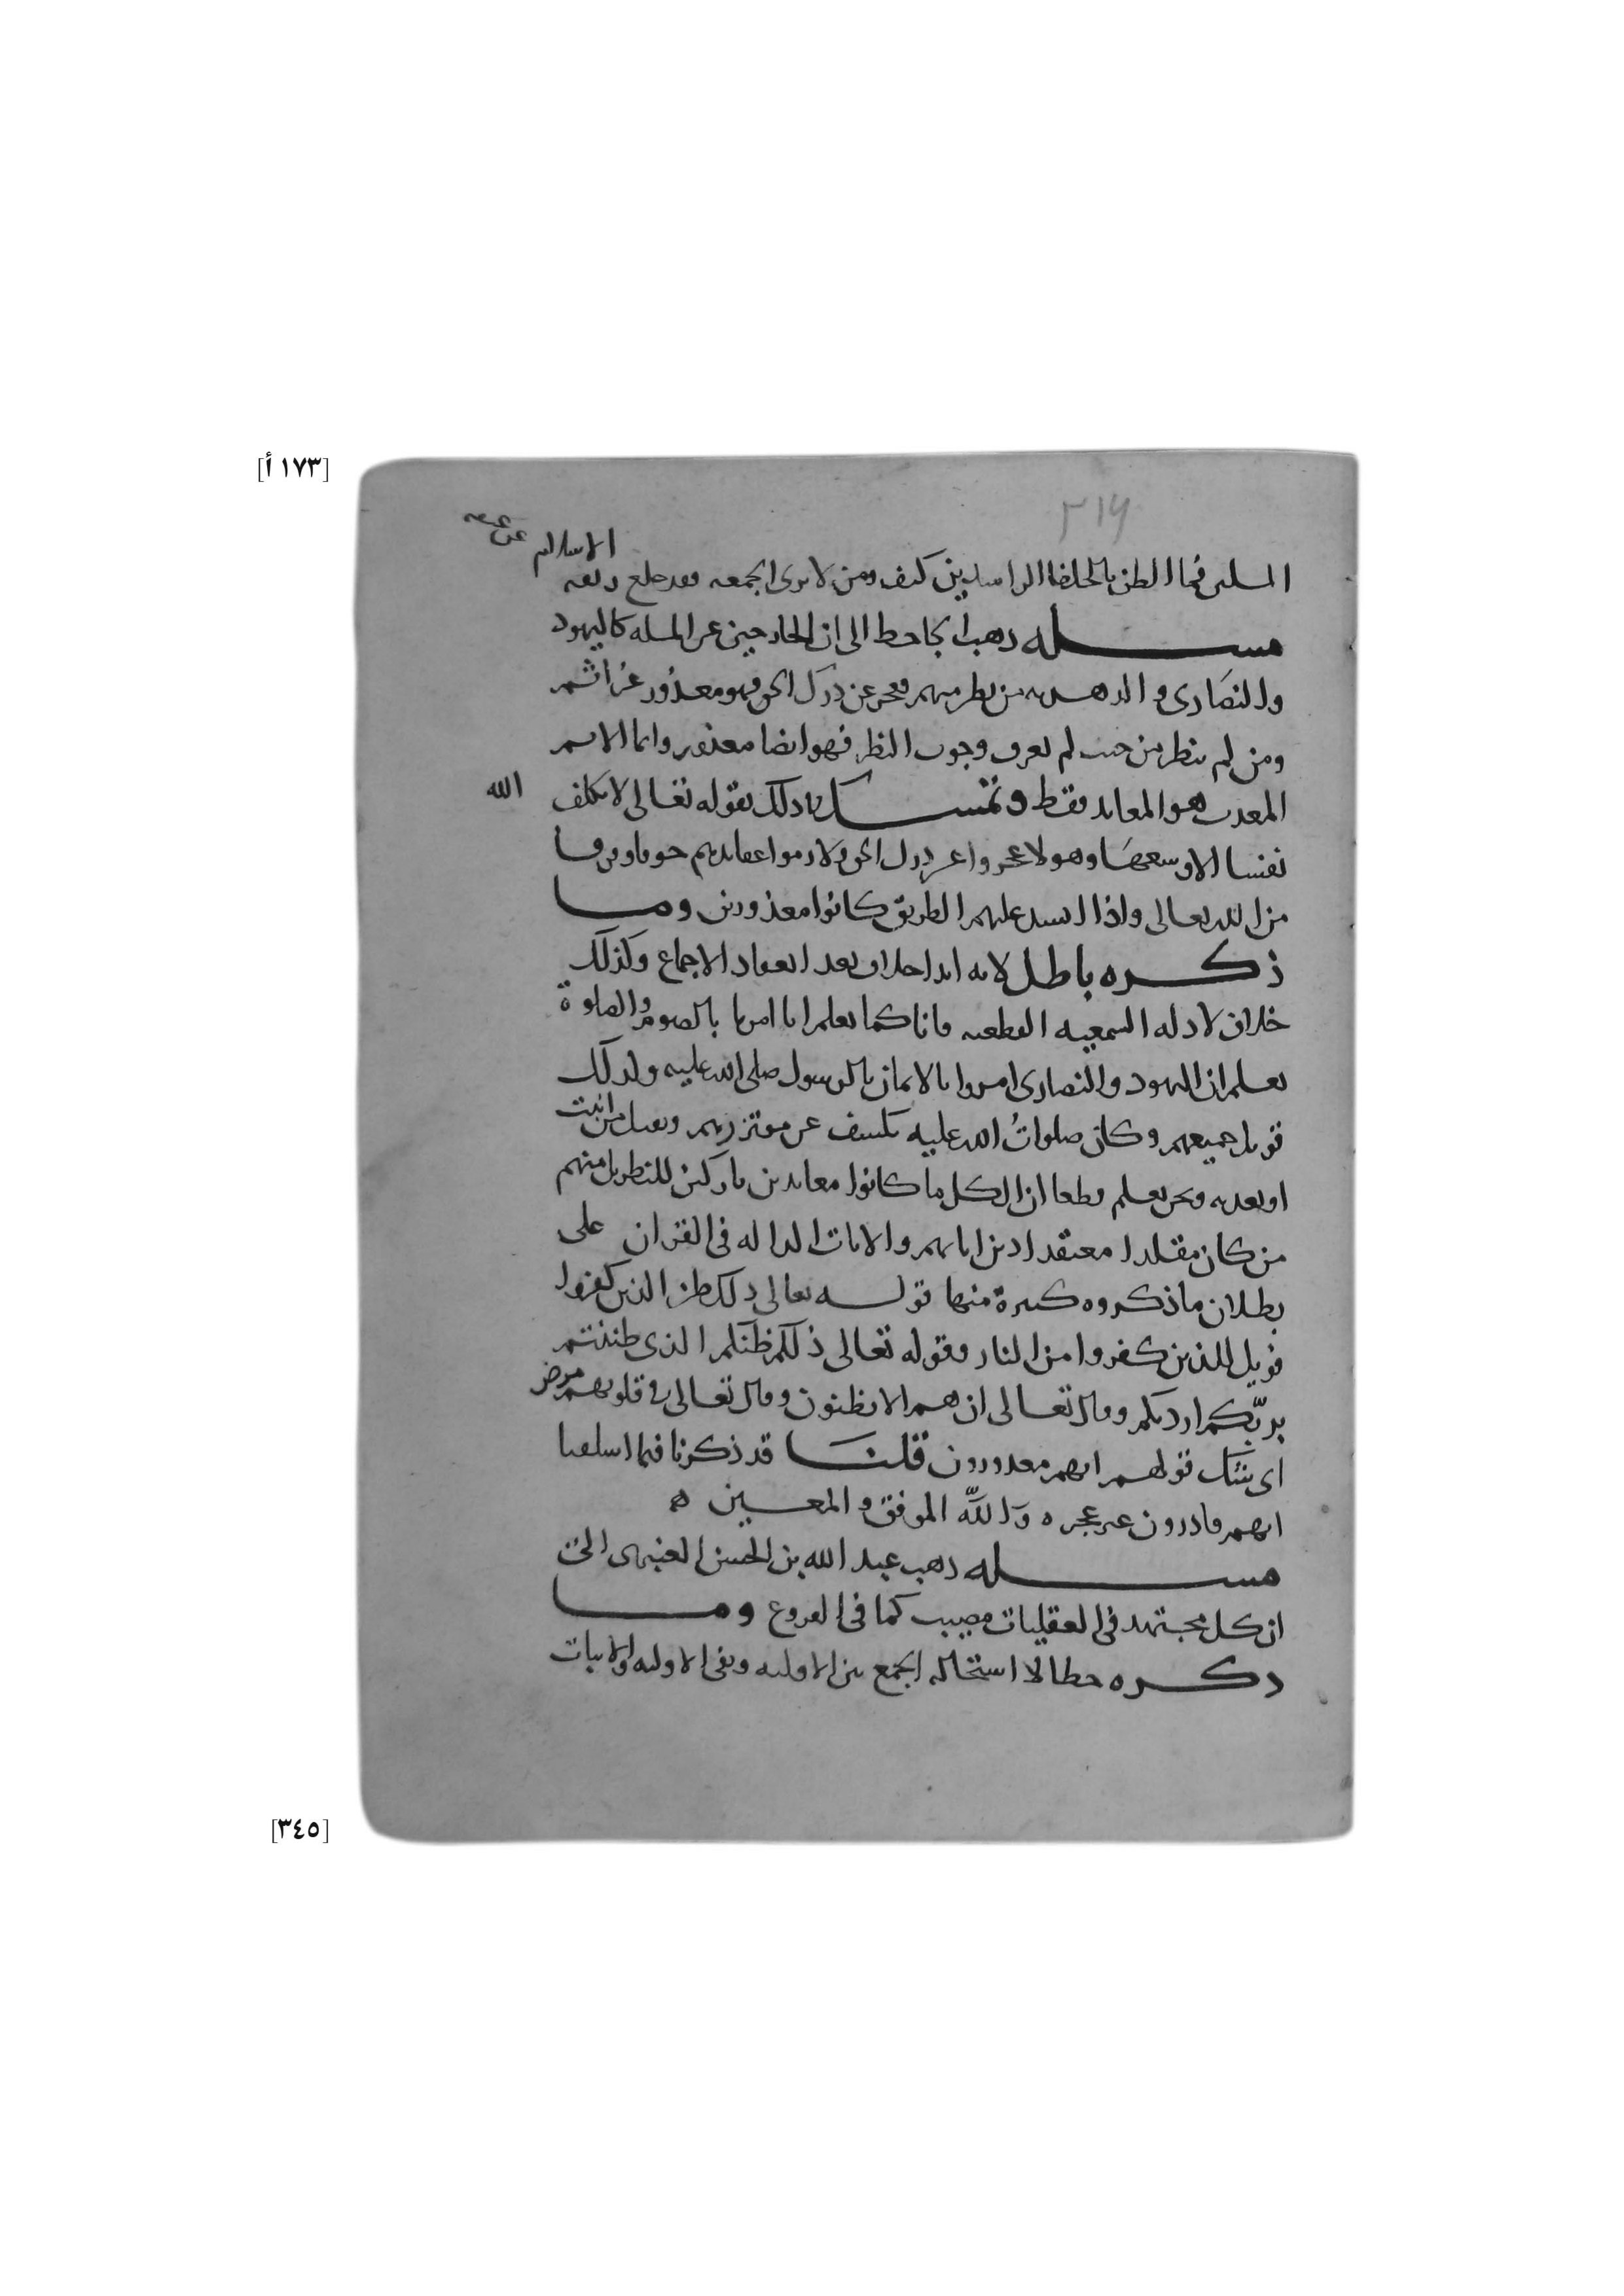 [١٧٣ أ]
٣١٩
المسلمين فما الظن بالخلفا الراشدين كيف ومن لا يرى الجمعه فقد خلع ربقه الاسلام عن عنقه
مسله ذهب الجاحظ الى ان الخارجين عن المله كاليهود
والنصارى والدهريه من نظر منهم فعجز عن درك الحق فهو معذور غير اثم
ومن لم ينظر من حيث لم يعرف وجوب النظر فهو ايضا معذور وانما الاثم
المعذب هو المعاند فقط وتمسك في ذلك بقوله تعالى لا يكلف الله
نفسا الا وسعها وهولا عجزوا عن درك الحق ولازموا عقايدهم خوفا وفرقا
من الله تعالى واذا انسد عليهم الطريق كانوا معذورين وما
ذكره باطل لانه ابدا خلاف بعد انعقاد الاجماع وكذلك
خلاف لادله السمعيه القطعيه فانا كما نعلم انا امرنا بالصوم والصلوة
نعلم ان اليهود والنصارى امروا بالايمان بالرسول صلى الله عليه ولذلك
قوتل جميعهم وكان صلوات الله عليه يكشف عن موتزريهم ويقتل من انبت
او يعذبه ونحن نعلم قطعا ان الكل ما كانوا معاندين تاركين للنظر بل منهم
من كان مقلدا معتقدا دين ابايهم والايات الداله فى القران على
بطلان ما ذكروه كثيرة منها قوله تعالى ذلك ظن الذين كفروا
فويل للذين كفروا من النار وقوله تعالى ذلكم ظنكم الذى ظننتم
بربكم ارديكم وقال تعالى ان هم الا يظنون وقال تعالى في قلوبهم مرض
اى شك قولهم انهم معذورون قلنا قد ذكرنا فيما اسلفنا
انهم قادرون غير عجزه والله الموفق والمعين
مسله ذهب عبد الله بن الحسن العنبرى الى
ان كل مجتهد فى العقليات مصيب كما فى الفروع وما
ذكره خطا لاستحاله الجمع بين الاوليه ونفى الاوليه والاثبات
[٣٤٥]